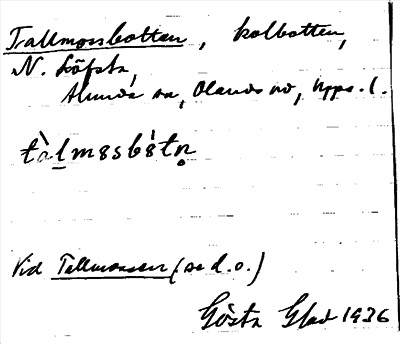 Tallmossbotten, kolbotten,
N. Löfsta,
Alunda sn, Olands hd, Upps. l.
tàl̠mɜsbɜ̀tn̥
Vid Tallmossen (se d.o.)
Gösta Glad 1936